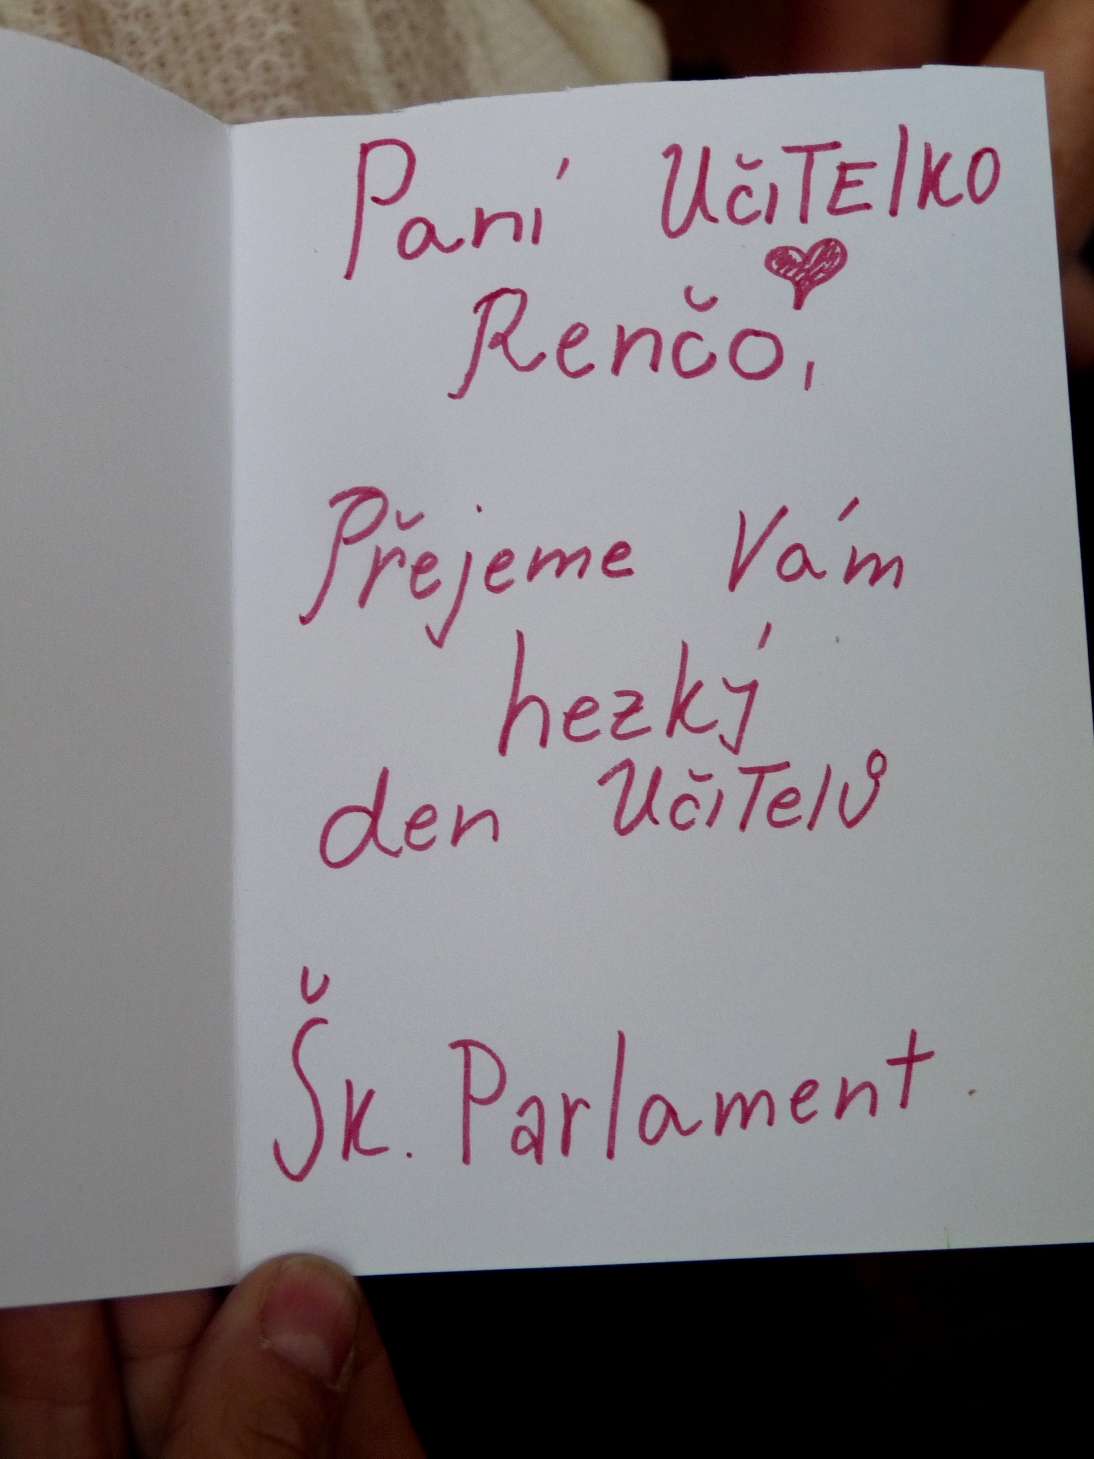 Paní UčiTElKO
Renčo,
Přejeme Vám
hezký
den UčiTelů
Šk. Parlament